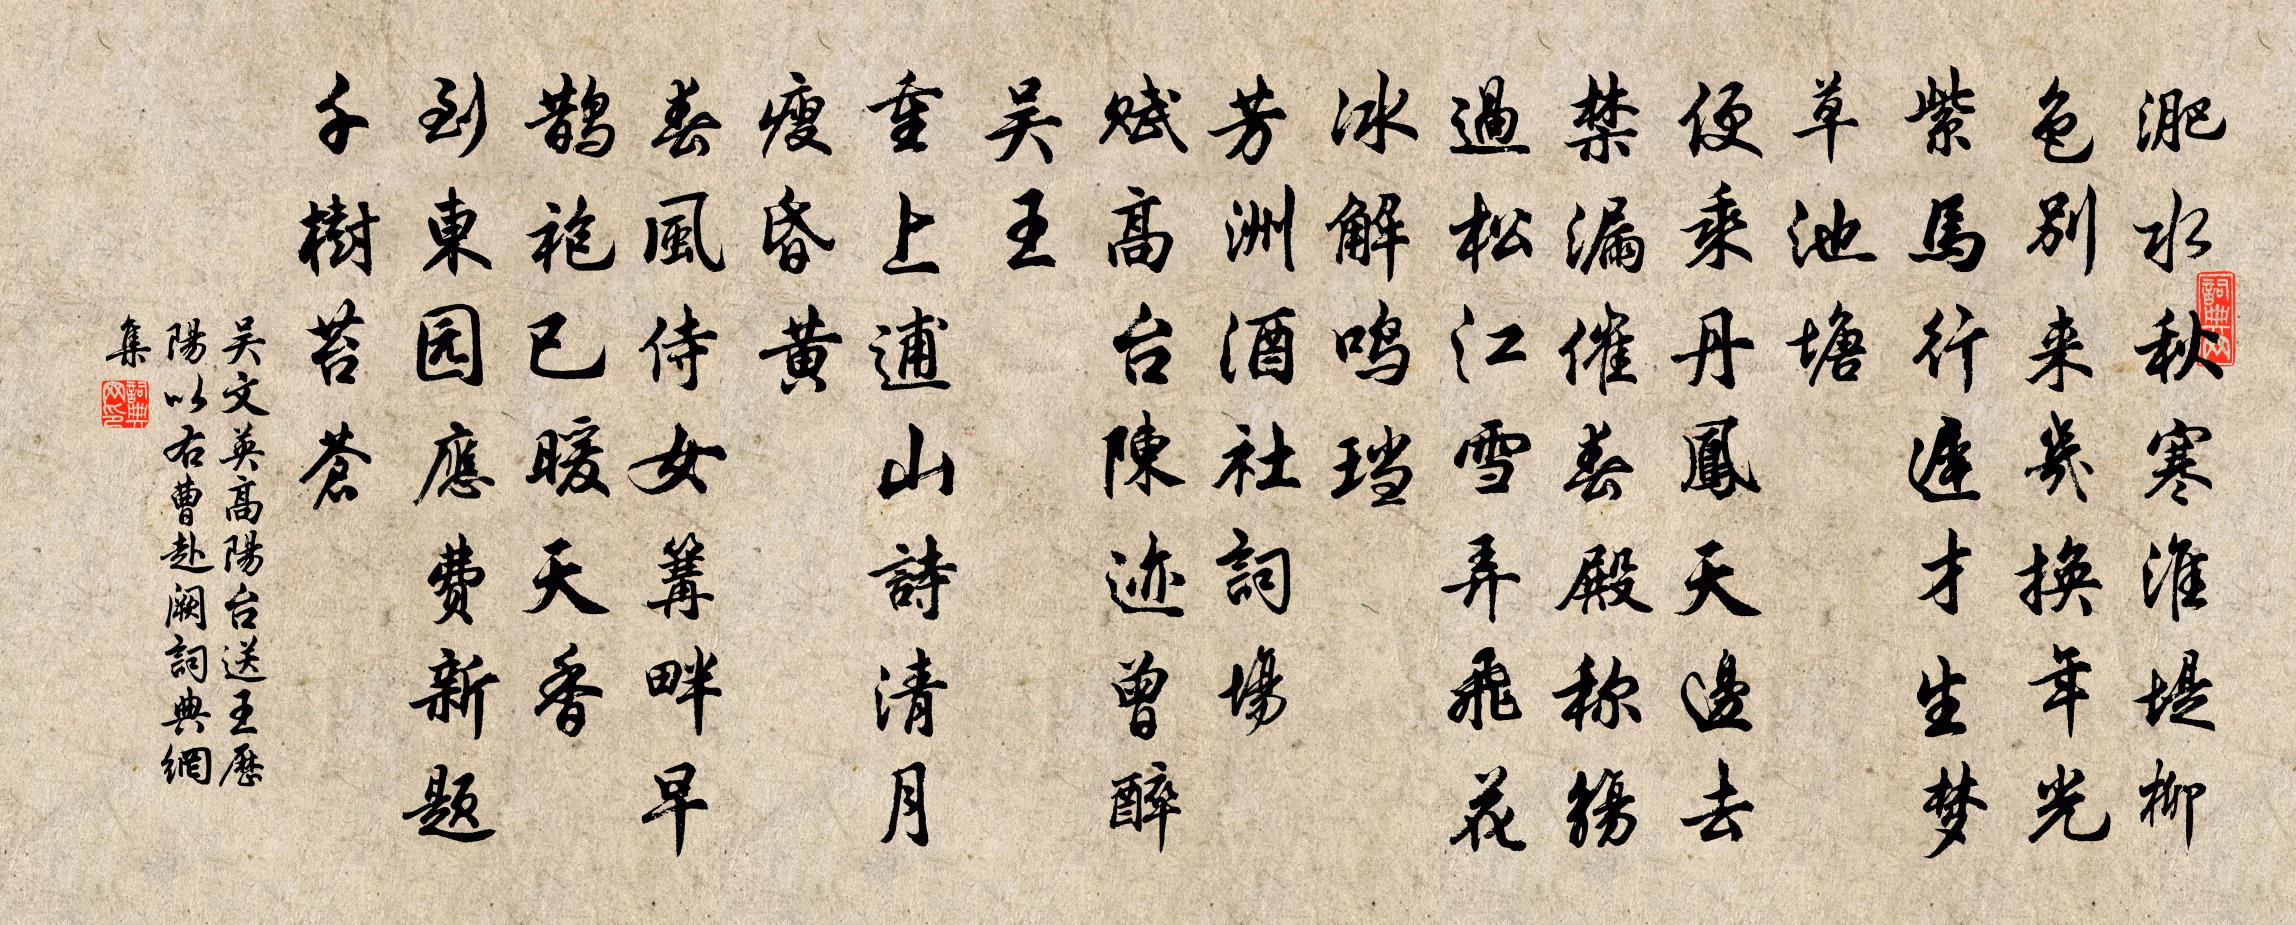 淝水秋寒淮堤柳
色别来幾换年光
紫馬行遲才生梦
草池塘
便乘丹鳳天邊去
禁漏催春殿称觴
過松江雪弄飛花
冰解鸣珰
芳洲酒社詞場
赋高台陳迹曾醉
吴王
重上逋山詩清月
瘦昏黄
春風侍女篝畔早
鹊袍已暖天香
到東园應费新题
千樹苔蒼
吴文英高陽台送王歷
陽以右曹赴阙詞典網
集